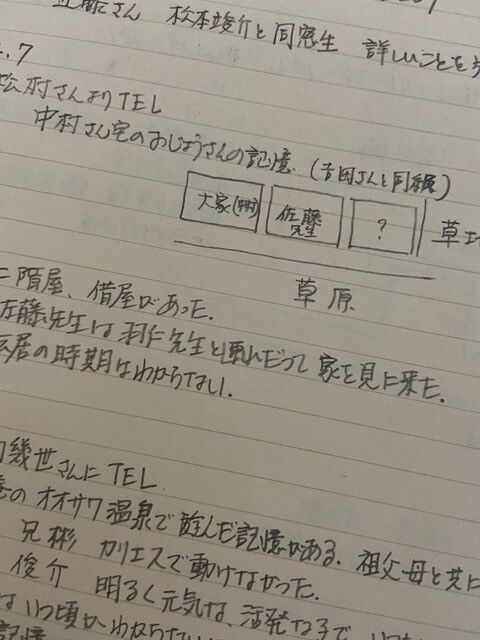 近藤さん 松本竣介と同窓生 詳しいことを
.7
松村さんよりTEL
中村さん宅のおじょうさんの記憶 (吉田さんと同級)
大家
佐藤先生
?
草
草原
に隣屋、借屋があった。
佐藤先生は羽仁先生と連れだって家を見に来た。
居の時期はわからない。
幾世さんにTEL
のオオサワ温泉で遊んだ記憶がある、祖父母と共に
兄彬 カリエスで動けなかった。
俊介 明るく元気な、活発な子で
いつ頃かわからない
記憶